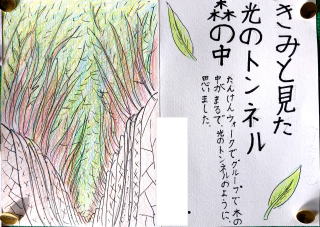 きみと見た
光のトンネル
森の中
たんけんウォークでグループで木の
中がまるで、光のトンネルのように、
思いました。